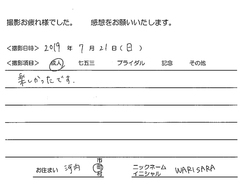 撮影お疲れ様でした。 感想をお願いいたします。
<撮影日時> 2019 年 7 月 21 日 (日)
<撮影項目> 成人 七五三 ブライダル 記念 その他
楽しかったです。
お住まい 河内 市 町 村 ニックネーム イニシャル WARISARA